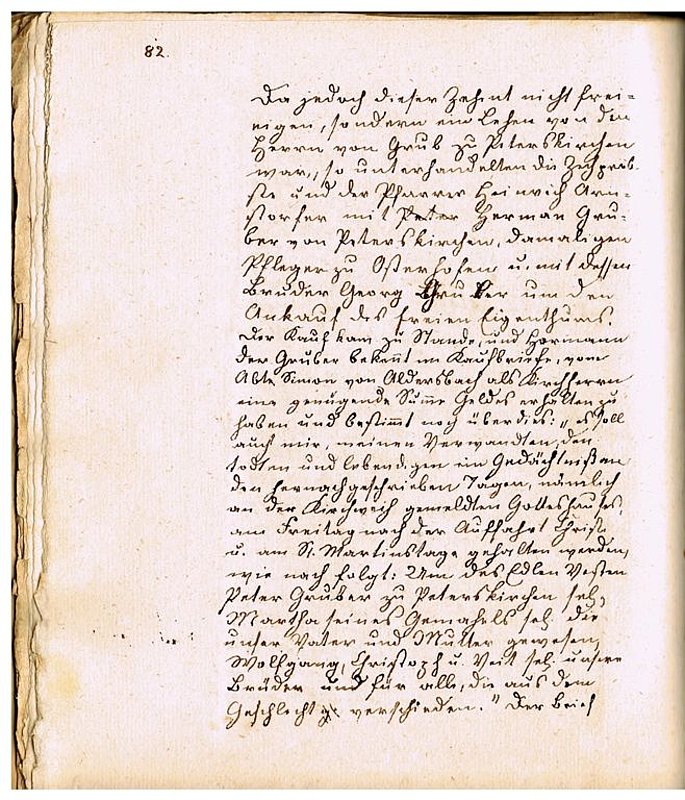 82.
Da jedoch dieser Zehent nicht frei=
eigen, sondern ein Lehen von den
Herrn von Grub zu Peterskirchen
war, so unterhandelten die Zechpröb=
ste und der Pfarrer Heinrich Arn=
storfer mit Peter Herman Gru=
ber von Peterskirchen, damaligen
Pfleger zu Osterhofen u. mit dessen
Bruder Georg Gruber um den
Ankauf des freien Eigenthums.
Der Kauf kam zu Stande, und Hormann
der Gruber bekennt im Kaufbriefe, vom
Abte Simon von Aldersbach als Kirchherrn
eine genügende Summe Geldes erhalten zu
haben und bestimmt noch überdies: „es soll
auch mir, meinen Verwandten, den
todten und lebendigen ein Gedächtniß an
den hernachgeschrieben Tagen, nämlich
an der Kirchweih gemeldten Gotteshauses,
am Freitag nach der Auffahrt Christi
u. am St. Martinstage gehalten werden,
wie nach folgt: Um des Edlen Vesten
Peter Gruber zu Peterskirchen sel.,
Martha seines Gemahels sel. die
unser Vater und Mutter gewesen,
Wolfgang, Christoph u. Veit sel. unsere
Brüder und für alle, die aus dem
Geschlecht verschieden." Der Brief